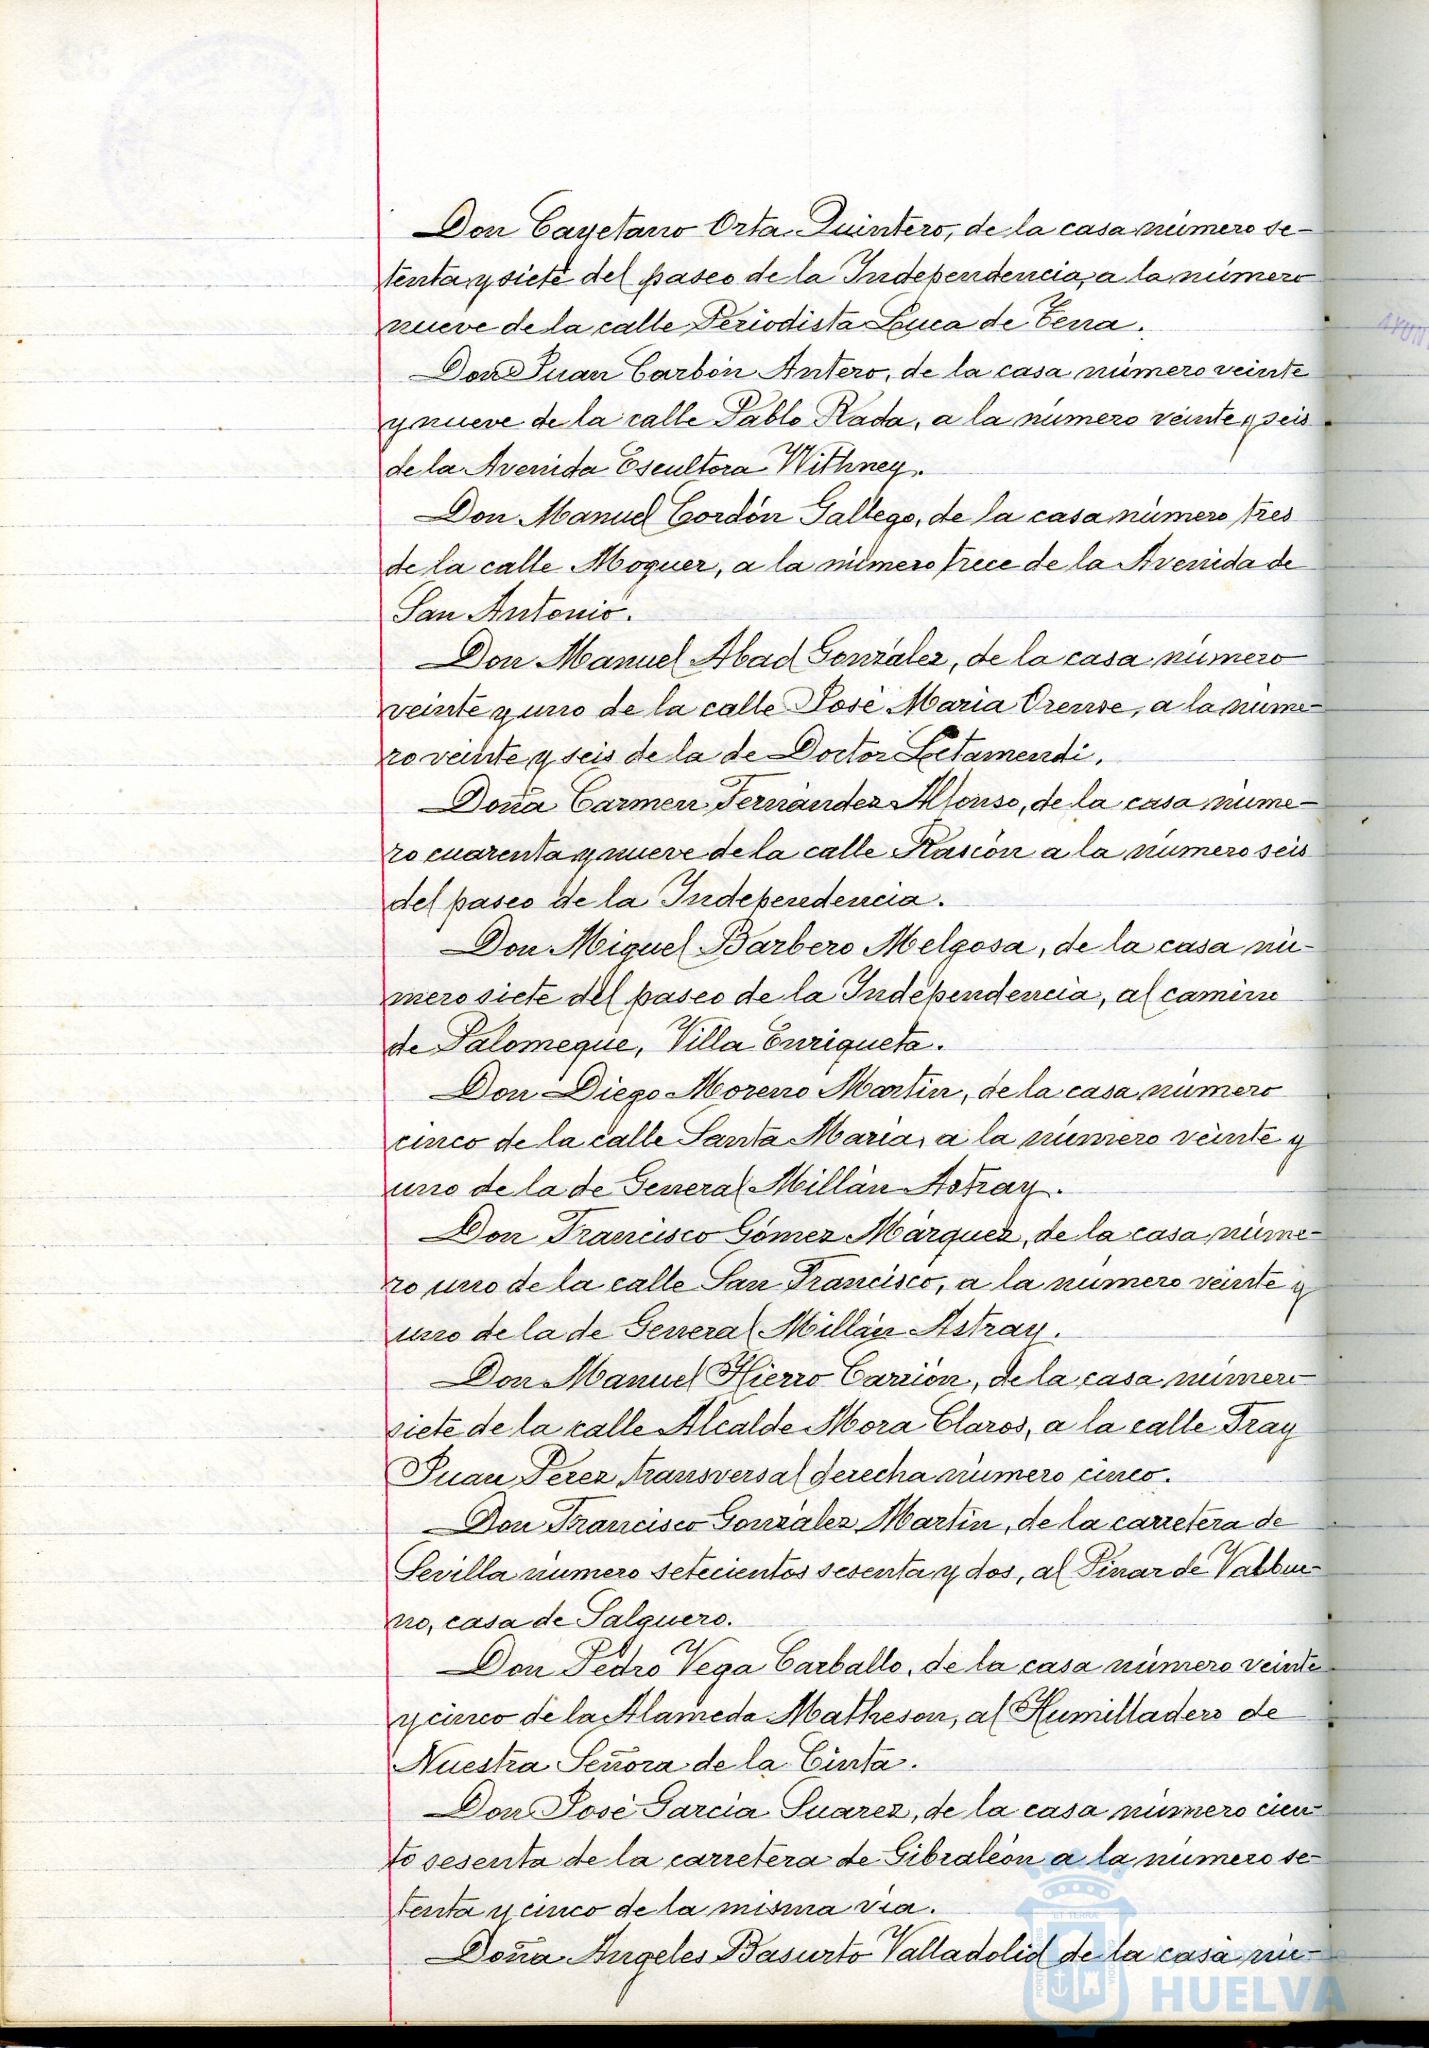 Don Cayetano Orta Quintero, de la casa número se-
tenta y siete del paseo de la Independencia, a la número
nueve de la calle Periodista Luca de Tena.
Don Juan Carbón Antero, de la casa número veinte
y nueve de la calle Pablo Rada, a la número veinte y seis
de la Avenida Escultora Withney.
Don Manuel Cordón Gallego, de la casa número tres
de la calle Moguer, a la número trece de la Avenida de
San Antonio.
Don Manuel Abad González, de la casa número
veinte y uno de la calle José Maria Orense, a la núme-
ro veinte y seis de la de Doctor Letamendi.
Doña Carmen Fernández Alfonso, de la casa núme-
ro cuarenta y nueve de la calle Rascón a la número seis
del paseo de la Independencia.
Don Miguel Barbero Melgosa, de la casa nú-
mero siete del paseo de la Independencia, al camino
de Palomeque, Villa Enriqueta.
Don Diego Moreno Martín, de la casa número
cinco de la calle Santa María, a la número veinte y
uno de la de General Millán Astray.
Don Francisco Gómez Márquez, de la casa núme-
ro uno de la calle San Francisco, a la número veinte y
uno de la de General Millán Astray.
Don Manuel Hierro Carrión, de la casa número
siete de la calle Alcalde Mora Claros, a la calle Fray
Juan Pérez transversal derecha número cinco.
Don Francisco González Martín, de la carretera de
Sevilla número setecientos sesenta y dos, al Pinar de Valbue-
no, casa de Salguero.
Don Pedro Vega Carballo, de la casa número veinte
y cinco de la Alameda Matheson, al Humilladero de
Nuestra Señora de la Cinta.
Don José García Suarez, de la casa número cien-
to sesenta de la carretera de Gibraleón a la número se-
tenta y cinco de la misma vía.
Doña Angeles Basurto Valladolid de la casa nú-
HUELVA